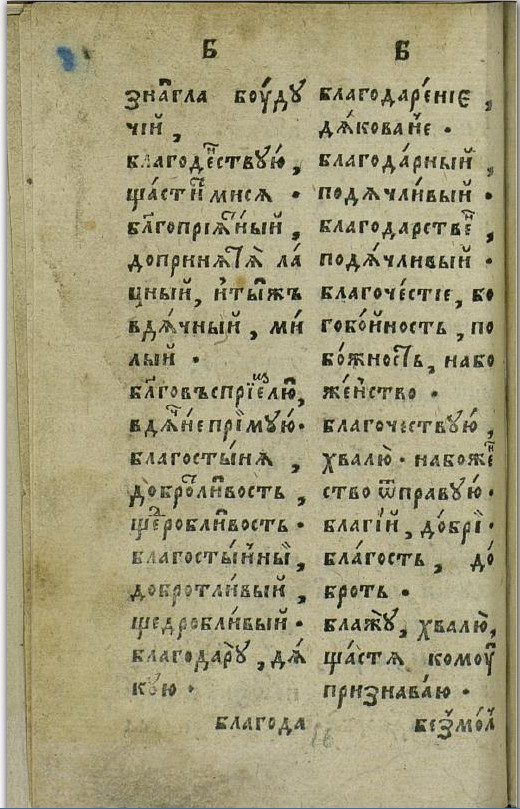 Б
знагла боуду
чїй,
благоденствую,
щастим мися.
благопріятный,
допринятя ла
цный, и тыжъ
вдячный, ми
лый.
благовъспріємлю,
вдячне приймую.
благостыня,
добротливость,
щедробливость.
благостынный,
добротливый,
щедробливый.
благодару, дя
кую.
благода
Б
благодареніє,
дякованє.
благодарный,
подячливый.
благодарствен,
подячливый.
благочестіе, бо
гобойность, по
божность, набо
женство.
благочествую,
хвалю. набожен
ство ѿправую.
благій, добрі.
благость, до
броть.
блажу, хвалю,
щастя комоу
признаваю.
безмол
16